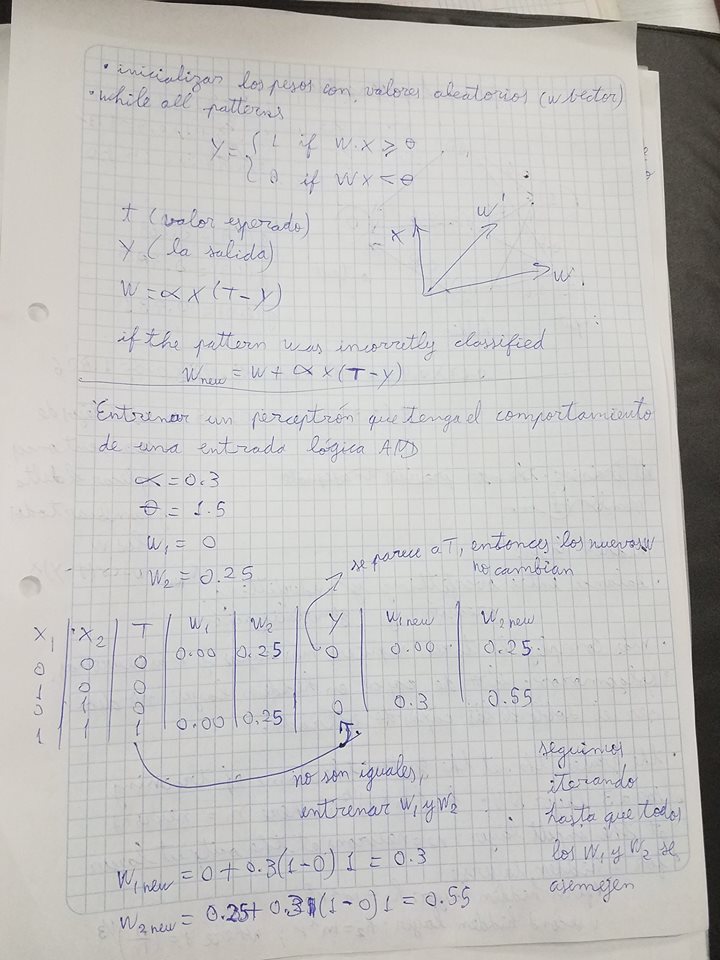 • inicializar los pesos con valores aleatorios (w vector)
• while all patterns
Y = { 1 if W.X ≥ θ
0 if WX < θ
t (valor esperado)
Y (la salida)
W = α X (T - Y)
X W' W
if the pattern was incorretly classified
Wnew = W + α X (T - Y)
Entrenar un perceptrón que tenga el comportamiento
de una entrada lógica AND
α = 0.3
θ = 1.5
W1 = 0
W2 = 0.25
se parece a T, entonces los nuevos w
no cambian
X1 | X2 | T | W1 | W2 | Y | W1new | W2new
0 | 0 | 0 | 0.00 | 0.25 | 0 | 0.00 | 0.25
1 | 0 | 0
0 | 1 | 0
1 | 1 | 1 | 0.00 | 0.25 | 0 | 0.3 | 0.55
no son iguales,
entrenar W1 y W2
seguimos
iterando
hasta que todos
los W1 y W2 se
asemejen
W1new = 0 + 0.3(1-0) 1 = 0.3
W2new = 0.25 + 0.3(1-0) 1 = 0.55